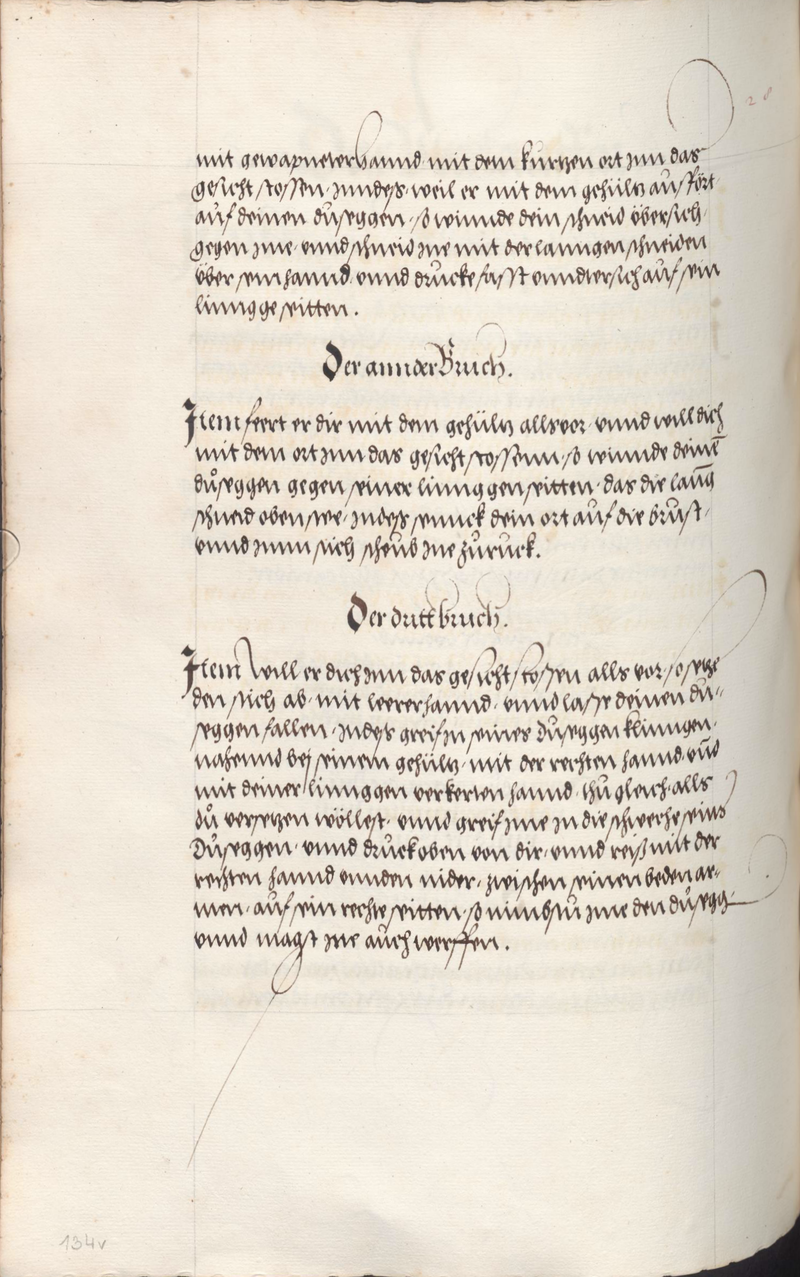 mit gewapneter hannd mit dem kurtzen ort inn das
gesicht stossen, inndess weil er mit dem gehültz ausfört
auf deinen dusëggen, so winnde dein schneid übersich
gegen ime, vnnd schneid ime mit der lanngen schneiden
über sein hannd, vnnd drucke fasst vnndtersich auf sein
linngge seitten.
Der annder Bruch.
Item feert er dir mit dem gehültz alls vor, vnnd will dich
mit dem ort inn das gesicht stossenn, so winnde deinē
důseggen gegen seiner linnggen seitten, das die lanng
schneid oben see, indess sennck dein ort auf die brust,
vnnd inn sich scheub ine zuruck.
Der dritt bruch.
Item will er dich inn das gesicht stossen alls vor, so setze
den stich ab, mit leerer hannd, vnnd lasse deinen du-
seggen fallen, indess greif in seines duseggen klinngen,
nahennd bej seinem gehültz, mit der rechten hannd, vnnd
mit deiner linnggen verkerten hannd, thu gleich, alls
du versetzen wöllest, vnnd greif ime in die schwech seins
Duseggen, vnnd druck oben von dir, vnnd reiß mit der
rechten hannd vnnden nider, zwischen seinen beden ar-
men, auf sein rechte seitten, so nimbstu ime den dusegg
vnnd magst ine auch werffen.
28
134v